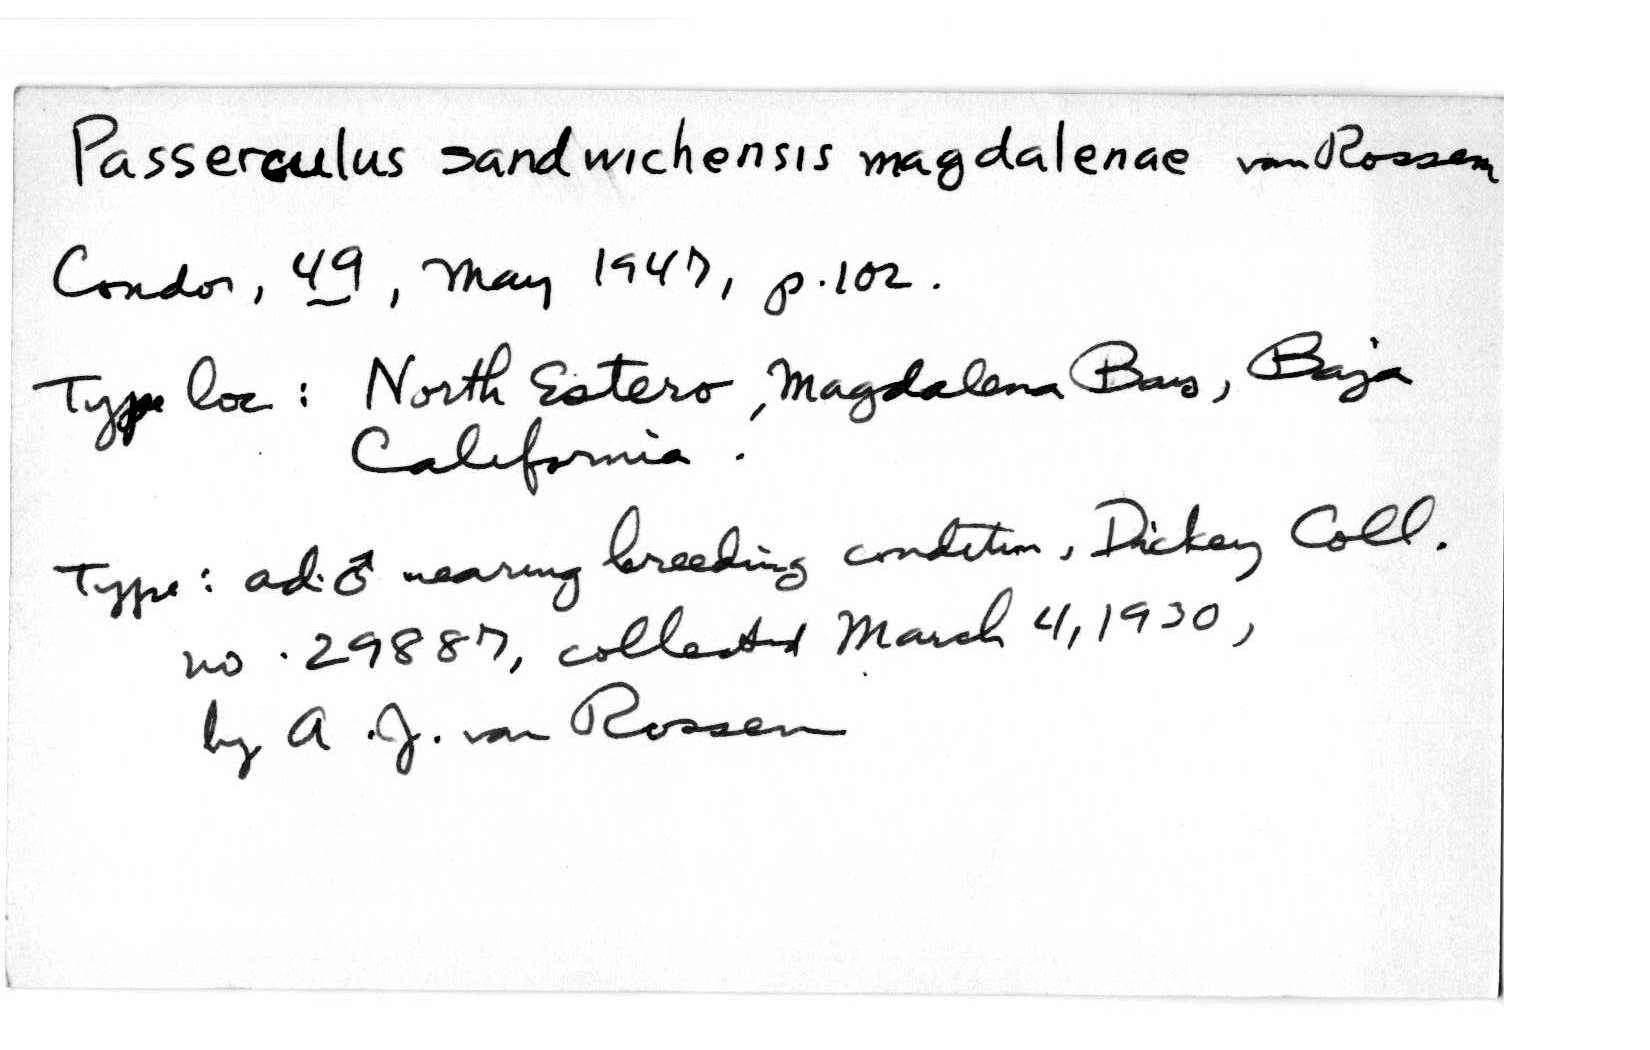 Passerculus sandwichensis magdalenae van Rossem
Condor, 49, May 1947, p. 102.
Type loc : North Estero, Magdalena Bay, Baja
California .
Type : ad. ♂ nearing breeding condition, Dickey Coll.
no. 29887, collected March 4, 1930,
by A. J. van Rossem